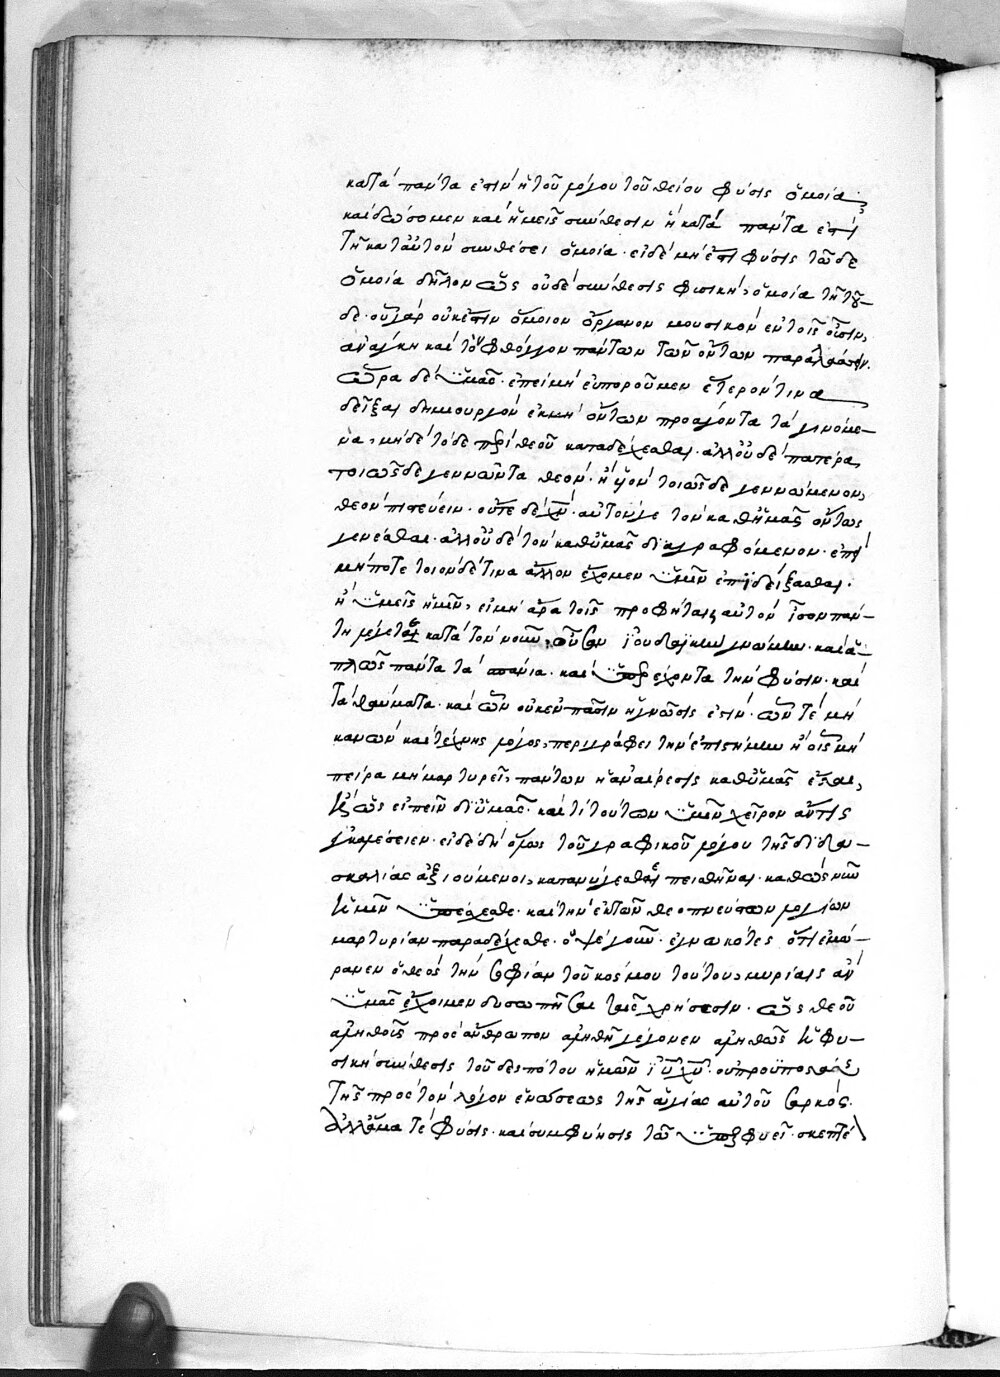 κατὰ πάντα ἐστὶν ἡ τοῦ λόγου τοῦ θείου φύσις ὁμοία,
καὶ δώσομεν καὶ ἡμεῖς σύνθεσιν ἢ κατὰ πάντα ἐπὶ
τῇ κατ' αὐτὸν συνθέσει ὁμοία. εἰ δὲ μὴ ἐστὶ φύσις τῶδε
ὁμοία δῆλον ὡς οὐδὲ σύνθεσις φυσικὴ, ὁμοία τῇ τοῦ-
δε. οὐ γὰρ οὐκ ἔστιν ὅμοιον ὄργανον μουσικὸν ἐν τοῖς οὖσιν,
ἀνάγκη καὶ τὸν φθόγγον πάντων τῶν ὄντων παραλλάσσειν.
ὥρα δὲ ὑμᾶς. ἐπεὶ μὴ εὐποροῦμεν ἕτερον τινα
δεῖξαι δημιουργὸν ἐκ μὴ ὄντων προαγόντα τὰ γινόμε-
να, μὴ δὲ τόδε περὶ θεοῦ καταδέχεσθαι. ἀλλ' οὐδὲ πατέρα
τοιῶσδε γεννῶντα θεόν. ἢ υἱὸν τοιῶσδε γεννώμενον,
θεὸν πιστεύειν. οὔτε δὲ χν. αὐτόν γε τὸν καθ' ἡμᾶς ὄντως
γενέσθαι. ἀλλ' οὐδὲ τὸν καθ' ὑμᾶς διαγραφόμενον. ἐπεὶ
μήποτε τοιόνδε τινα ἄλλον ἔχομεν ὑμῖν ἐπιδείξασθαι.
ἢ ὑμεῖς ἡμῖν, εἰ μὴ ἄρα τοῖς προφήταις αὐτὸν ἴσον πάν-
τῃ λέγετε κατὰ τὸν νοῦν, οὖσαν ἰουδαϊκὴν γνώμην. καὶ ἁ-
πλῶς πάντα τὰ σπάνια. καὶ ὑπερέχοντα τὴν φύσιν. καὶ
τὰ θαύματα. καὶ ὧν οὐκ ἐν πᾶσιν ἡ γνῶσις ἐστίν. ὧν τὲ μὴ
κανὼν καὶ τέχνης λόγος, περιγράφει τὴν ἐπιστήμην ἢ οἷς μὴ
πεῖρα μὴ μαρτυρεῖ, πάντων ἡ ἀναίρεσις καθ' ὑμᾶς
ὡς εἰπεῖν δι' ὑμᾶς. καὶ τί τούτων ὑμῖν χεῖρον ἄν τις
εἰ δὲ δὴ ὅμως τοῦ γραφικοῦ λόγου τῆς διδα-
σκαλίας ἀξιούμενοι, πεισθῆναι. καθὼς νῦν
ἡμῖν ὑπέσχεσθε. καὶ τὴν ἐκ τῶν θεοπνεύστων λογίων
μαρτυρίαν παραδέχεσθε. ἐγνωκότες ὅτι ἐμώ-
ρανεν ὁ θεὸς τὴν σοφίαν τοῦ κόσμου τούτου, μυρίαις ἂν
ὑμᾶς ἔχοιμεν δυσωπῆσαι ταῖς χρήσεσιν. ὡς θεοῦ
ἀληθοῦς πρὸς ἄνθρωπον ἀληθῆ γέγονεν ἀληθῶς ἡ φυ-
σικὴ σύνθεσις τοῦ δεσπότου ἡμῶν ιυ χυ. οὐ προϋποστάσης
τῆς πρὸς τὸν λόγον ἑνώσεως τῆς ἁγίας αὐτοῦ σαρκός.
ἀλλ' ἅμα τὲ φύσις. καὶ συμφύησις τῶ ὑπερφυεῖ. σκεπτέ